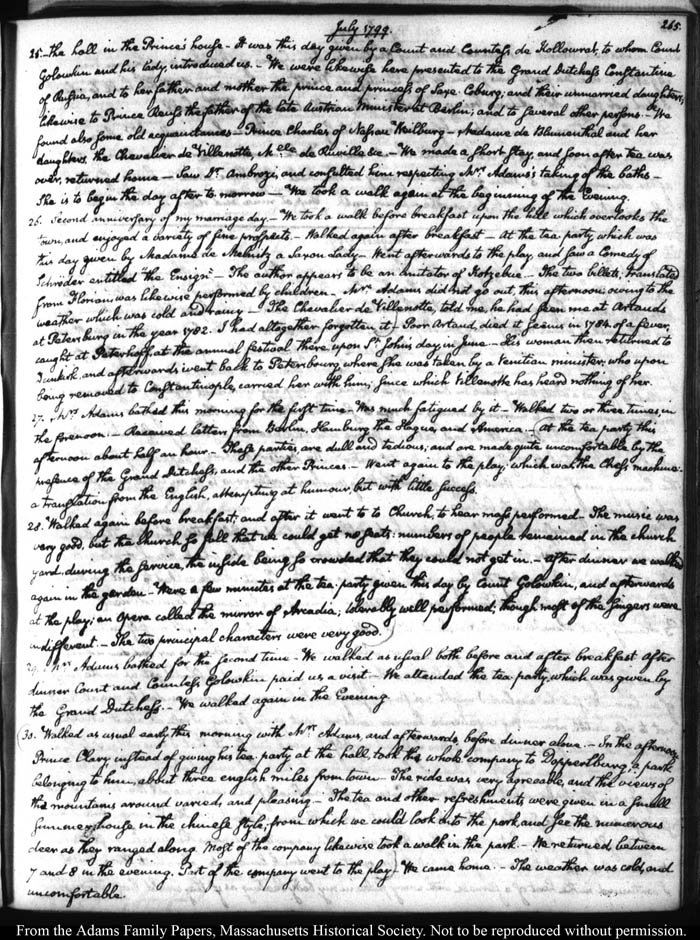 July 1799.
265.
25. the hall in the Prince's house - It was this day given by a Count and Countess de Kollowrat, to whom Count
Golowkin and his lady introduced us. - We were likewise here presented to the Grand Dutchess Constantine
of Russia, and to her father and mother the prince and princess of Saxe-Coburg, and their unmarried daughters,
likewise to Prince Reuss the father of the late Austrian Minister at Berlin; and to several other persons. - We
found also some old acquaintances - Prince Charles of Nassau - Madame de Blumenthal and her
daughters, the Chevalier de Villenotte, Mlle de Ruville &c. - We made a short stay, and soon after tea was
over, returned home - Saw Dr. Ambrozi, and consulted him respecting Mrs. Adams's taking of the baths -
She is to begin the day after to-morrow - We took a walk again at the beginning of the Evening.
26. Second anniversary of my marriage day. - We took a walk before breakfast upon the hill which overlooks the
town, and enjoyed a variety of fine prospects. - Walked again after breakfast - At the tea party, which was
this day given by Madame de a Saxon Lady - Went afterwards to the play, and saw a Comedy of
Schröder entitled the Ensign - The author appears to be an imitator of Kotzebue - The two billets, translated
from Florian was likewise performed by children. - Mrs. Adams did not go out, this afternoon; owing to the
weather which was cold and rainy - The Chevalier de Villenotte, told me, he had seen me at Artauds
at Petersburg in the year 1782. I had altogether forgotten it - Poor Artaud, died it seems in 1784. of a fever,
caught at Peterhoff, at the annual festival there upon St. John's day in June - His woman then returned to
Dunkirk, and afterwards went back to Petersbourg, where she was taken by a Venitian minister, who upon
being removed to Constantinople, carried her with him; since which Villenotte has heard nothing of her.
27. Mrs. Adams bathed this morning for the first time - Was much fatigued by it - Walked two or three times, in
the forenoon. - Received letters from Berlin, Hamburg, the Hague, and America. - At the tea party this
afternoon about half an hour - These parties are dull and tedious; and are made quite uncomfortable by the
presence of the Grand Dutchess, and the other Princes. - Went again to the play; which was the Chess machine.
a translation from the English, attempting at humour, but with little success.
28. Walked again before breakfast; and after it went to to Church, to hear mass performed - The music was
very good, but the Church so full that we could get no seats: numbers of people remained in the church
yard during the service, the inside being so crowded that they could not get in. - After dinner we walked
again in the garden - Were a few minutes at the tea-party given this day by Count Golowkin, and afterwards
at the play; an Opera called the mirror of Arcadia; tolerably well performed; though most of the singers were
indifferent. - The two principal characters were very good.
29. Mrs. Adams bathed for the second time - We walked as usual both before and after breakfast. After
dinner Count and Countess Golowkin paid us a visit - We attended the tea party, which was given by
the Grand Dutchess. - We walked again in the Evening.
30. Walked as usual early this morning with Mrs. Adams, and afterwards, before dinner alone. - In the afternoon
Prince Clary instead of giving his tea party at the hall, took the whole company to Doppertburg, a park
belonging to him, about three english miles from town - The ride was very agreeable, and the views of
the mountains around varied, and pleasing - The tea and other refreshments were given in a small
summer-house, in the chinese style; from which we could look into the park, and see the numerous
deer as they ranged along. Most of the company likewise took a walk in the park. - We returned between
7 and 8 in the evening. Part of the company went to the play - We came home. - The weather was cold, and
uncomfortable.
From the Adams Family Papers, Massachusetts Historical Society. Not to be reproduced without permission.